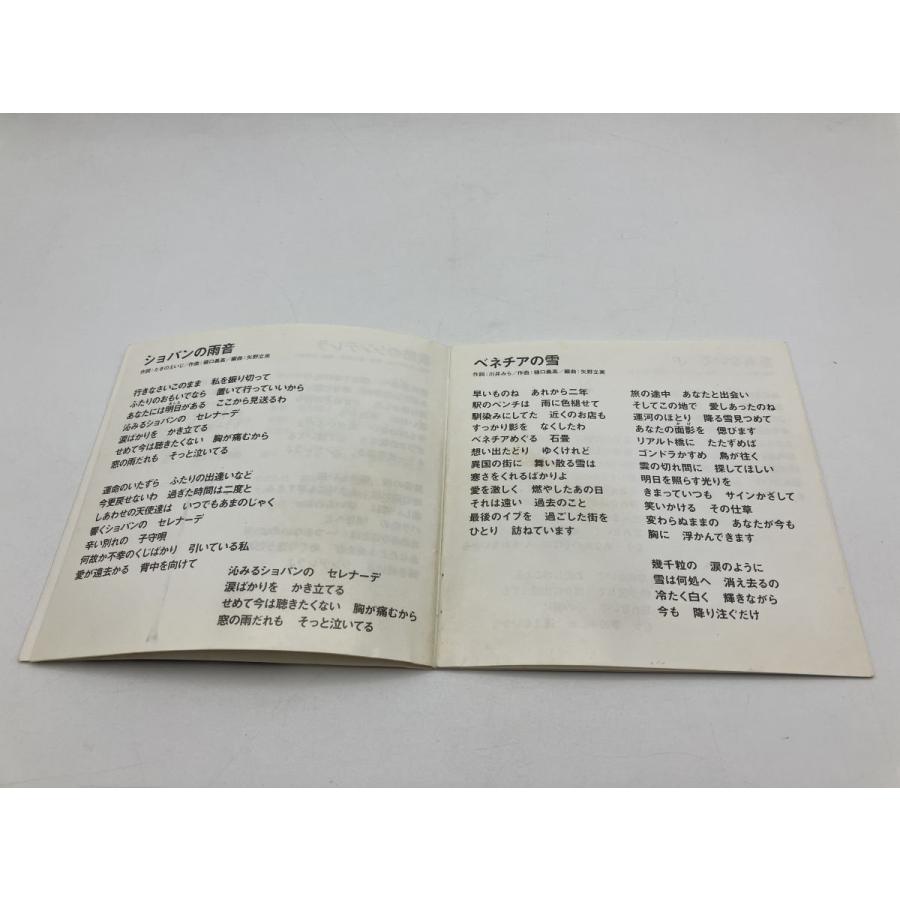 ショパンの雨音
作詞:ときのえいじ/作曲:樋口義高/編曲:矢野立美
行きなさいこのまま 私を振り切って
ふたりのおもいでなら 置いて行っていいから
あなたには明日がある ここから見送るわ
沁みるショパンの セレナーデ
涙ばかりを かき立てる
せめて今は聴きたくない 胸が痛むから
窓の雨だれも そっと泣いてる
運命のいたずら ふたりの出逢いなど
今更戻せないわ 過ぎた時間は二度と
しあわせの天使達は いつでもあまのじゃく
響くショパンの セレナーデ
辛い別れの 子守唄
何故か不幸のくじばかり 引いている私
愛が遠去かる 背中を向けて
沁みるショパンの セレナーデ
涙ばかりを かき立てる
せめて今は聴きたくない 胸が痛むから
窓の雨だれも そっと泣いてる
ベネチアの雪
作詞:川井みら/作曲:樋口義高/編曲:矢野立美
早いものね あれから二年
駅のベンチは 雨に色褪せて
馴染みにしてた 近くのお店も
すっかり影を なくしたわ
ベネチアめぐる 石畳
想い出たどり ゆくけれど
異国の街に 舞い散る雪は
寒さをくれるばかりよ
愛を激しく 燃やしたあの日
それは遠い 過去のこと
最後のイブを 過ごした街を
ひとり 訪ねています
旅の途中 あなたと出会い
そしてこの地で 愛しあったのね
運河のほとり 降る雪見つめて
あなたの面影を 偲びます
リアルト橋に たたずめば
ゴンドラかすめ 鳥が往く
雲の切れ間に 探してほしい
明日を照らす光りを
きまっていつも サインかざして
笑いかける その仕草
変わらぬままの あなたが今も
胸に 浮かんできます
幾千粒の 涙のように
雪は何処へ 消え去るの
冷たく白く 輝きながら
今も 降り注ぐだけ